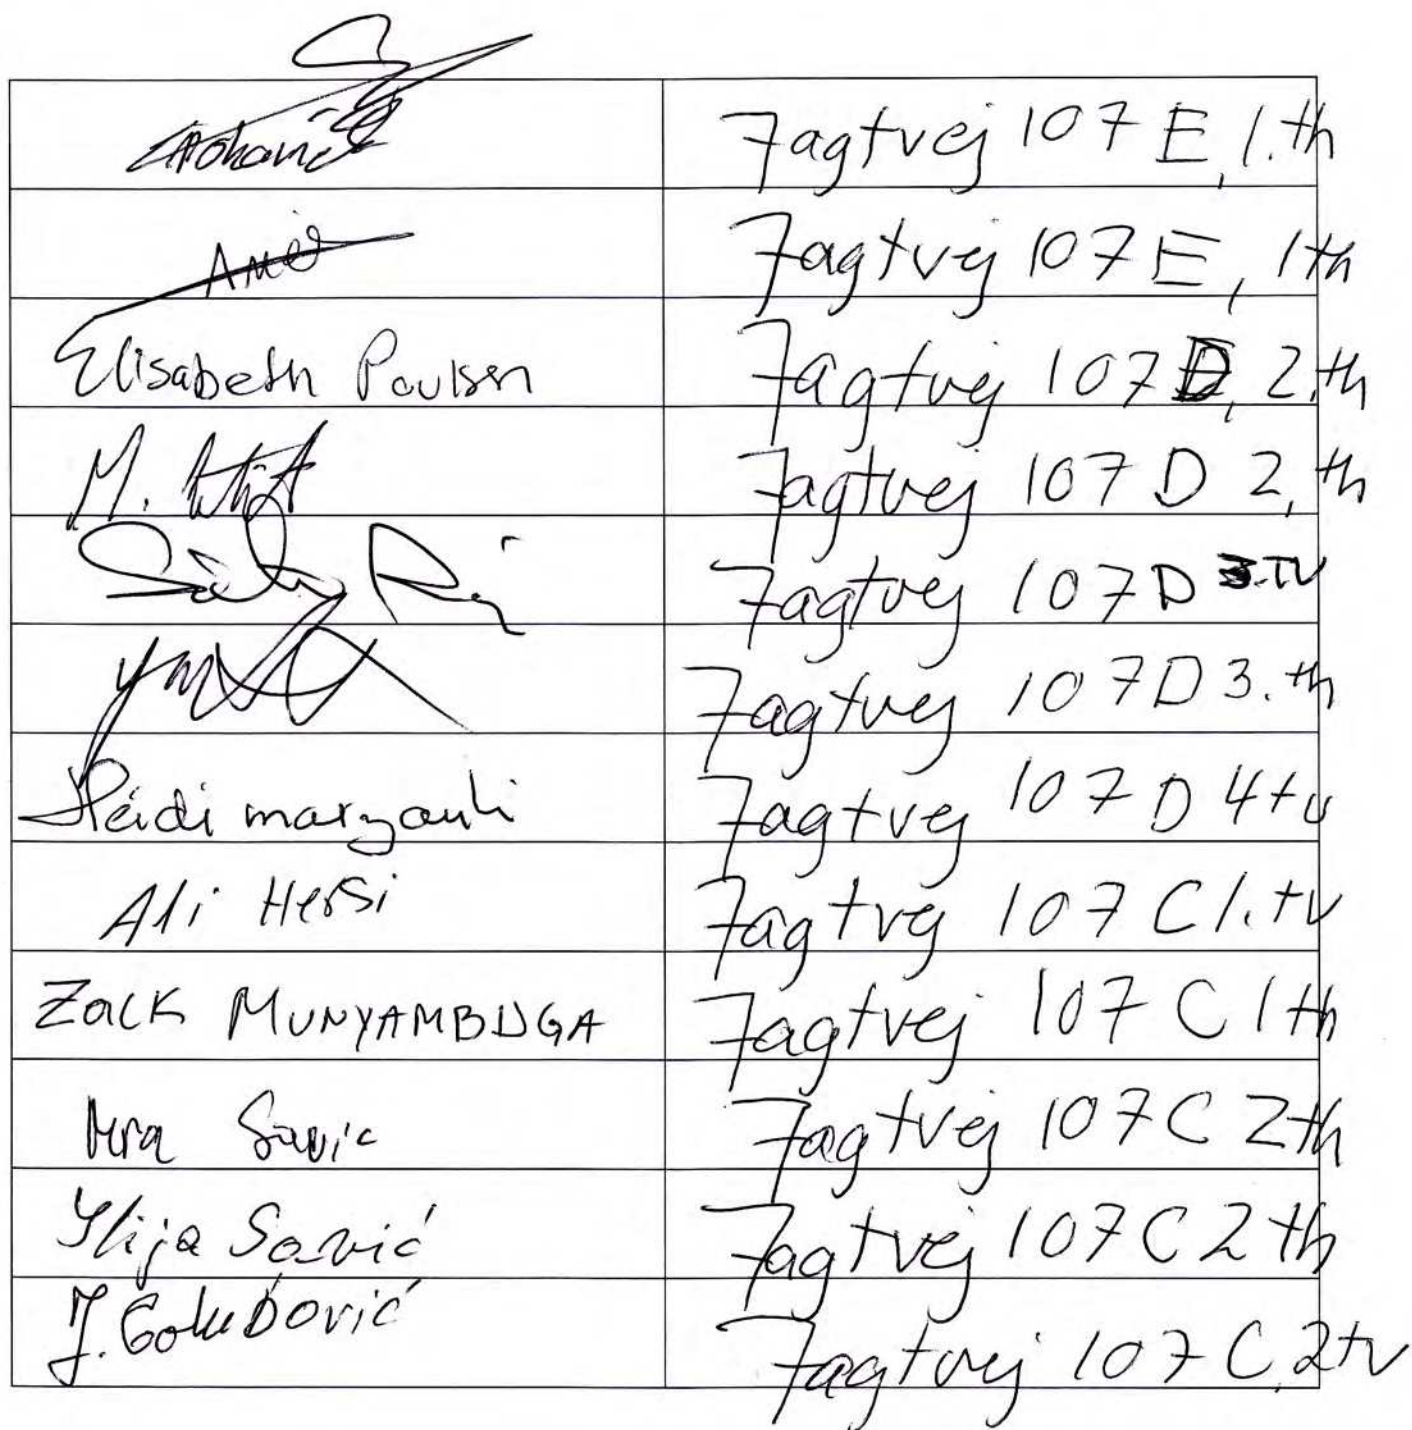 Jagtvej 107 E, 1.th
Jagtvej 107 E, 1th
Elisabeth Poulsen Jagtvej 107 D, 2.th
M. Jagtvej 107 D 2, th
Jagtvej 107 D 3.TV
Jagtvej 107 D 3.th
Heidi Jagtvej 107 D 4 tv
Ali Hersi Jagtvej 107 C 1.tv
Zack MUNYAMBUGA Jagtvej 107 C 1 th
Savic Jagtvej 107 C 2 th
Ilija Savić Jagtvej 107 C 2 th
J. Golubović Jagtvej 107 C, 2 tv